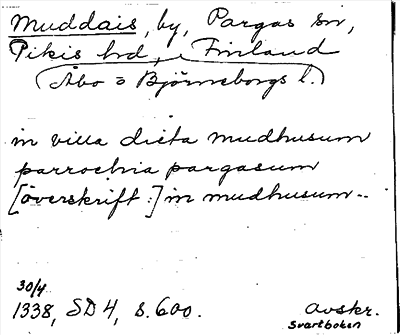 Muddais, by, Pargas sn,
Pikis hd, Finland
(Åbo o Björneborgs l.)
in villa dicta mudhusum
parrochia pargasum
[överskrift:] in mudhusum..
30/4
1338, SD 4, s. 600.
Avskr.
Svartboken